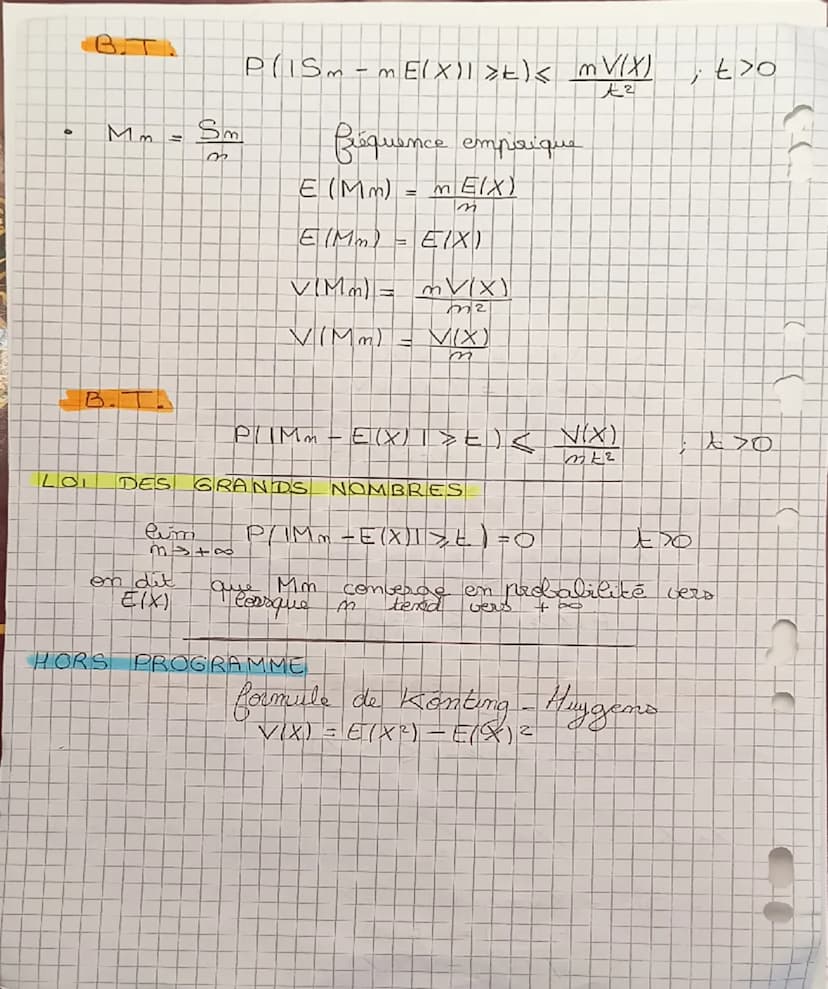 B.T.
P(|Sn - nE(X)| ⩾ t) ⩽ nV(X)/t² ; t>0
• Mn = Sn/n fréquence empirique
E(Mn) = nE(X)/n
E(Mn) = E(X)
V(Mn) = nV(X)/n²
V(Mn) = V(X)/n
B.T.
P(|Mn - E(X)| ⩾ t) ⩽ V(X)/nt² ; t>0
LOI DES GRANDS NOMBRES
lim n→+∞ P(|Mn - E(X)| ⩾ t) = 0 t>0
on dit que Mn converge en probabilité vers
E(X) lorsque n tend vers +∞
HORS PROGRAMME
formule de Könting - Huygens
V(X) = E(X²) - E(X)²